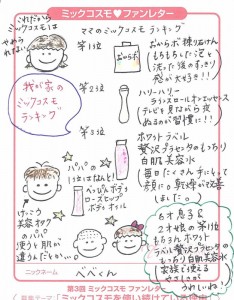 ミックコスモ♥ファンレター
これだから
ミックコスモは
やめられない!
我が家の
ミックコスモ
ランキング
ママのミックコスモランキング
第1位
おからボ
おからボ 練り石けん
(もちもちした泡と
洗った後のすっきり
感が大好き!!)
第2位
ハリーハリー
テレビを見ながら
ぬるのが習慣に!!)
第3位
ホワイトラベル
贅沢プラセンタの
もっちり
白肌美容水
(毎日たくさん手に
とって
顔に。乾燥
パパの
第1位はなんと!
ボディ
ローズヒップ
ボディオイル
けっこう
美容オタク
のパパの
使うと肌が
違うんだとか…
6才息子&
2才娘の第1位
もちろんホワイト
ラベル贅沢プラセンタの
もっちり白肌美容水
家族で使える
やさしさが
うれしいね!
ニックネーム
べべくん
第3回 ミックコスモ ファンレター
募集テーマ:「ミックコスモを使い続けている理由」